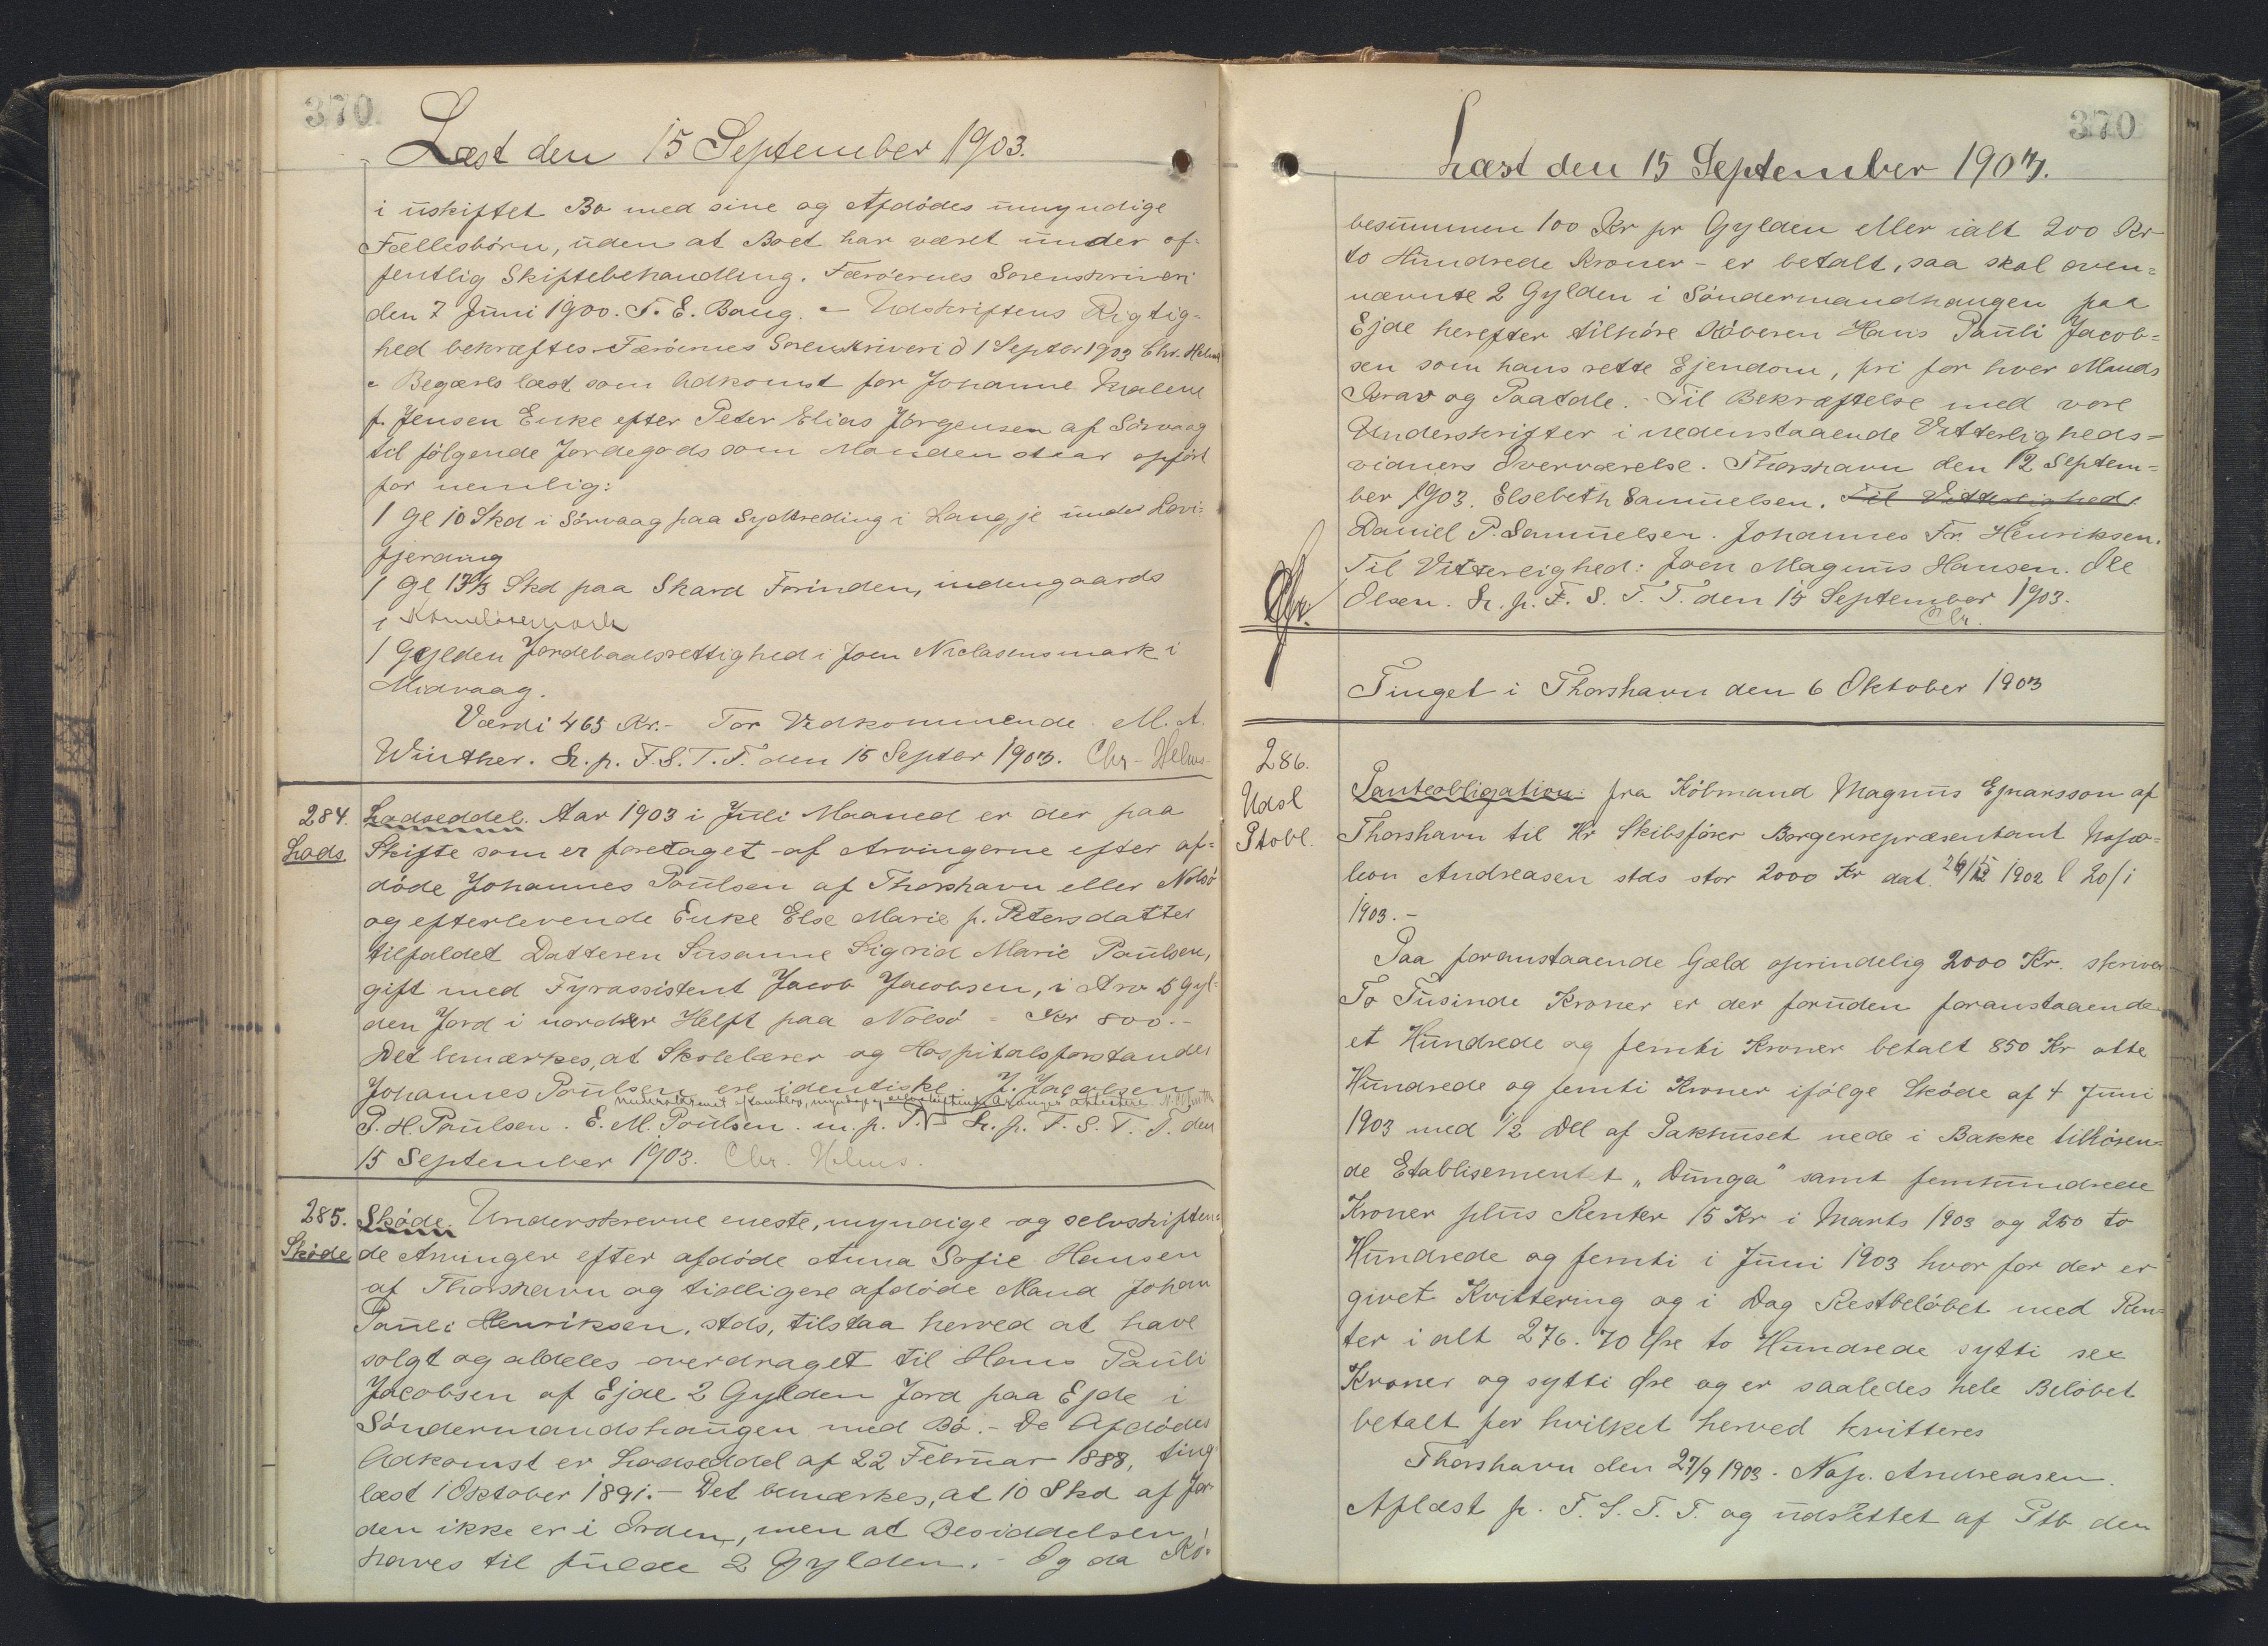 370
Læst den 15 September 1903.
i uskiftet Bo med sine og Afdødes umyndige
Fællesbörn, uden at Boet har været under of-
fentlig Skiftebehandling. Færöernes Sorenskriveri
den 7 Juni 1900. T. E. Bang. - Udskriftens Rigtig-
hed bekræftes Færöernes Sorenskriveri d 1 Septbr 1903 Chr. Helms
- Begæres læst som Adkomst for Johanne Malene
f. Jensen Enke efter Peter Elias Jörgensen af Sörvaag
til fölgende Jordegods som Manden staar opfört
for nemlig:
1 Gl 10 Skd i Sörvaag paa Sydtreding i Langgje under Lovi-
fjerding
1 Gl 13⅓ Skd paa Skard Forinden, indengaards
i
1 Gylden Jordebaalsrettighed i Joen Niclasensmark i
Midvaag.
Værdi 465 Kr.- For Vedkommende. M. A.
Winther. L. p. F. S. T. T. den 15 Septbr 1903. Chr. Helms
284.
Lods
Lodseddel. Aar 1903 i Juli Maaned er der paa
Skifte som er foretaget af Arvingerne efter af-
döde Johannes Poulsen af Thorshavn eller Nolsö
og efterlevende Enke Else Marie f. Petersdatter
tilfaldet Datteren Susanne Sigrid Marie Poulsen,
gift med Fyrassistent Jacob Jacobsen, i Arv 5 Gyl-
den Jord i nordre Helft paa Nolsö = Kr 800.-
Det bemærkes, at Skolelærer og Hospitalsforstander
Johannes Poulsen ere identiske. J. Jacobsen
P. H. Poulsen. E. M. Poulsen. m. p. T. L. p. F. S. T. T. den
15 September 1903. Chr. Helms.
285.
Skøde
Sköde. Underskrevne eneste, myndige og selvskiften-
de Arvinger efter afdöde Anna Sofie Hansen
af Thorshavn og tidligere afdöde Mand Johan
Pauli Henriksen, stds, tilstaa herved at have
solgt og aldeles overdraget til Hans Pauli
Jacobsen af Ejde 2 Gylden Jord paa Ejde i
Söndermandshaugen med Bö. - De Afdödes
Adkomst er Lodseddel af 22 Februar 1888, ting-
læst 1 Oktober 1891. - Det bemærkes, at 10 Skd af Jor-
den ikke er i Orden, men at Besiddelsen
haves til fulde 2 Gylden. - Og da Kö-
370
Læst den 15 September 1903.
besummen 100 Kr pr Gylden eller ialt 200 Kr
to Hundrede Kroner - er betalt, saa skal oven-
nævnte 2 Gylden i Söndermandhaugen paa
Ejde herefter tilhöre Köberen Hans Pauli Jacob-
sen som hans rette Ejendom, fri for hver Mands
Krav og Paatale. - Til Bekræftelse med vore
Underskrifter i nedenstaaende Vitterligheds-
vidners Overværelse. Thorshavn den 12 Septem-
ber 1903. Elsebeth Samuelsen. Til Vitterlighed:
Daniel P. Samuelsen. Johannes Fr. Henriksen.
Til Vitterlighed: Joen Magnus Hansen. Ole
Olsen. L. p. F. S. T. T. den 15 September 1903.
Chr.
Tinget i Thorshavn den 6 Oktober 1903
286.
Udsl
Ptobl.
Panteobligation: fra Köbmand Magnus Ejnarsson af
Thorshavn til Hr Skibsförer Borgerrepræsentant Napo-
leon Andreasen stds stor 2000 Kr dat. 1902 l 20/1
1903. -
Paa foranstaaende Gæld oprindelig 2000 Kr. skriver
To Tusinde Kroner er der foruden foranstaaende
et Hundrede og femti Kroner betalt 850 Kr otte
Hundrede og femti Kroner ifölge Sköde af 4 Juni
1903 med 1/2 Del af Pakhuset nede i Bakke tilhören-
de Etablisementet „Dunga" samt femhundrede
Kroner plus Renter 15 Kr i Marts 1903 og 250 to
Hundrede og femti i Juni 1903 hvor for der er
givet Kvittering og i Dag Restbelöbet med Ren-
ter i alt 276. 70 Øre to Hundrede sytti sex
Kroner og sytti Øre og er saaledes hele Belöbet
betalt for hvilket herved kvitteres
Thorshavn den 27/9 1903. Nap. Andreasen.
Aflæst p. F. S. T. T. og udslettet af Ptb den